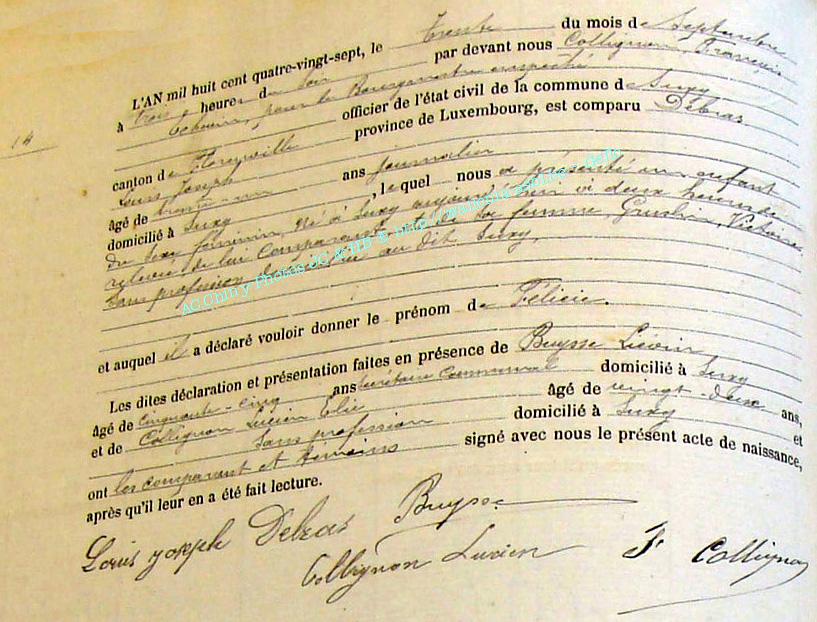 L'AN mil huit cent quatre-vingt-sept, le trente du mois de Septembre
à trois heures du soir par devant nous Collignon François,
Echevin, pour le Bourgmestre empêché
officier de l'état civil de la commune de Suxy
14
canton de Florenville province de Luxembourg, est comparu Debras
Louis Joseph
âgé de trente-un ans journalier
domicilié à Suxy, lequel nous a présenté un enfant
du sexe féminin, né à Suxy aujourd'hui à deux heures
relevée, de lui comparant et de sa femme, Victoire,
sans profession, domiciliée au dit Suxy,
et auquel il a déclaré vouloir donner le prénom de Félicie.
Les dites déclaration et présentation faites en présence de Buysse Liévin
âgé de cinquante-cinq ans secrétaire communal domicilié à Suxy
et de Collignon Lucien Elie âgé de vingt-deux ans,
sans profession domicilié à Suxy et
ont les comparant et témoins signé avec nous le présent acte de naissance,
après qu'il leur en a été fait lecture.
Louis joseph Debras Buysse
Collignon Lucien F. Collignon